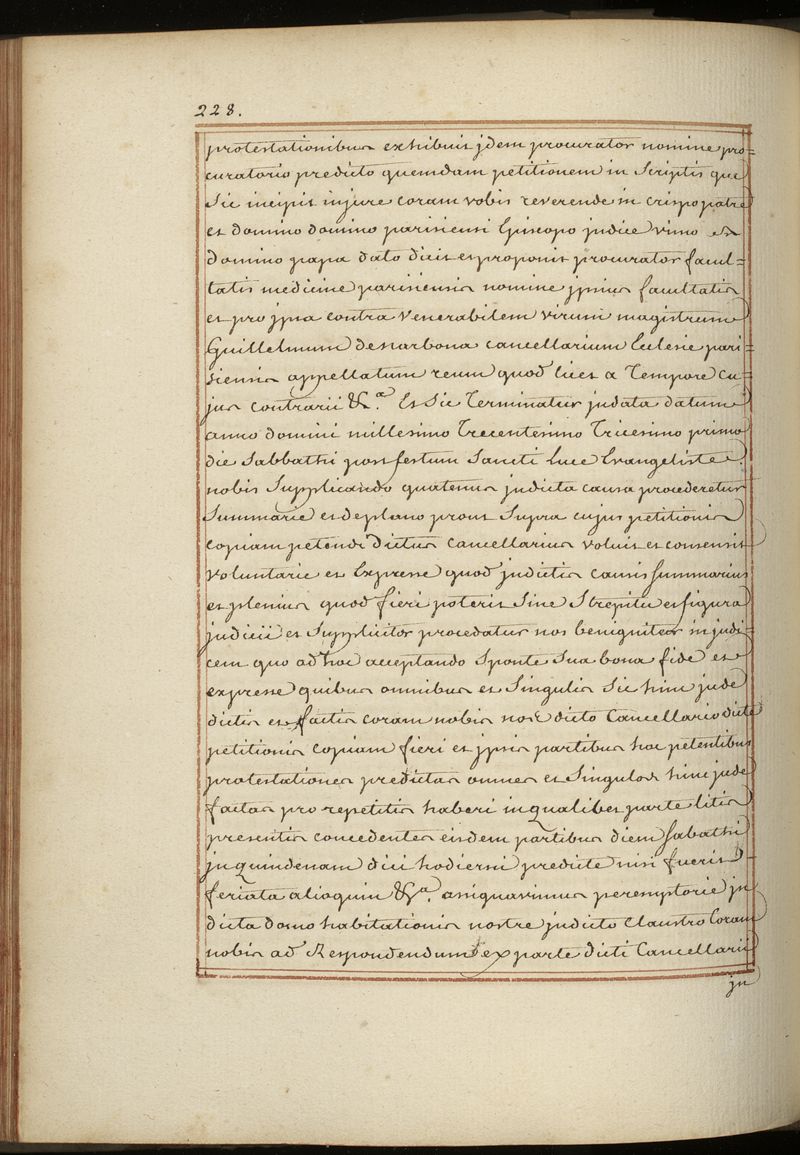 228.
protestationibus exhibuit jdem procurator nomine pro=
curatorio predicto quemdam petitionem in Scriptis que
Sic incipit injure coram vobis reverende in crispo patre
et domino domino parisiensi Episcopo judice vimo et a
domino papa dato dicit et proponit procurator facul=
tatis medicine parisiensis nomine jpsius facultatis
et pro jpsa contra Venerabilem virum magistrum
Guillelmum de Narbona cancellarium Eclesie pari=
siensis appellatum reum quod licet a Tempore cu=
jus contrarii &.a Et Sic Terminatur judata datum
anno domini millesimo Trecentesimo Tricesimo primo
die Sabbathi post festum Sancti Luce Evangeliste.
nobis Supplicando quatenus judicta causa procederetur
Summarie et deplano prout Supra cujus petitionis
copiam petendi dictus cancellarius voluit et consensit
voluntarie et Expresse quod judictis causis summarius
et plenius quod fieri poterit Sine Strepitu et figura
judicii et Suppliciter procedatur nos benigniter in judi
cem quo ad hoc acceptando Sponte Sua bona fide et
expresse quibus omnibus et Singulis Sic hinc jude
dictis et factis coram nobis nos dicto Cancellario dicte
petitionis copiam fieri et jpsis partibus hoc petentibus
protestationes predictas omnes et Singulos hinc jude
factas pro repetitis haberi inqualibet parte litis
presentis concedentes eisdem partibus diem Sabathi
jnquindenam diei hodierni predicte nisi fuerit
feriata alioquin &a. assignavimus peremptorie jn
dicta domo habitationis nostre judicto Claustro Coram
nobis ad Respondendum ex parte dicti Cancellarii
jn